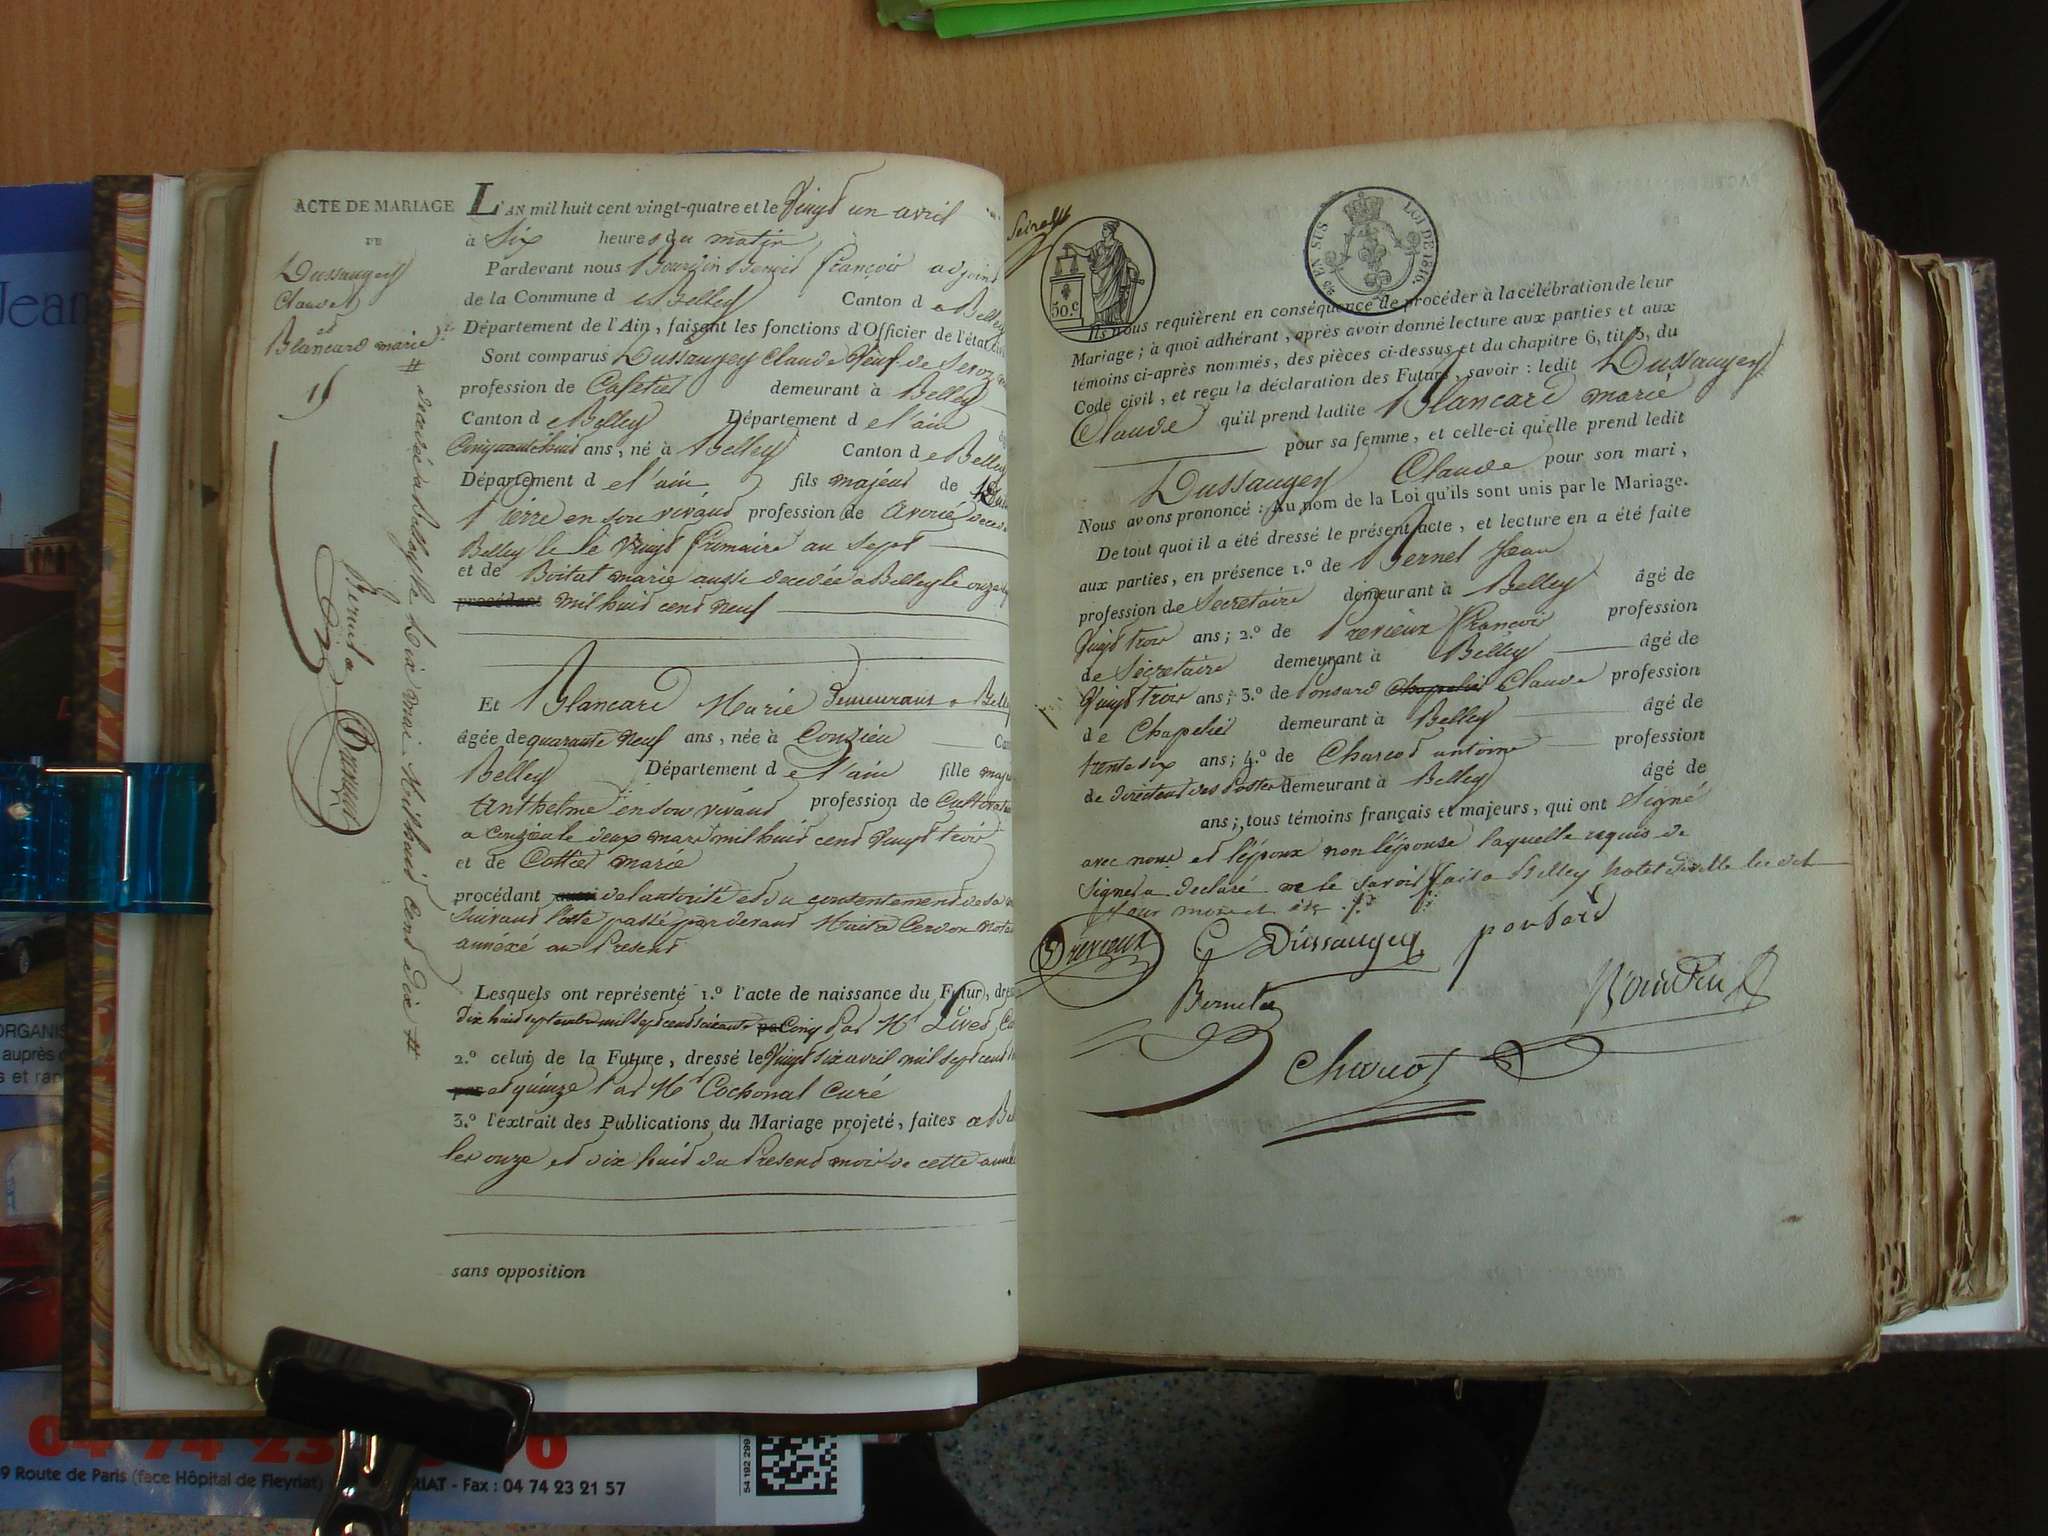 ACTE DE MARIAGE
DE
Dussaugey
Claude
et
Blancard marie
15
# decedée à
mil huit cent dix #
Bernet
L'AN mil huit cent vingt-quatre et le Vingt un avril
à Six heures du matin
Pardevant nous Bourdin Benoit françois adjoint
de la Commune d e Belley Canton d e Belley
Département de l'Ain, faisant les fonctions d'Officier de l'état
Sont comparus Dussaugey Claude Veuf de
profession de Cafetier demeurant à Belley
Canton d e Belley Département d e l'ain
Cinquante huit ans, né à Belley Canton d e Belley
Département d e l'ain fils majeur de
Pierre en son vivant profession de Avoué
Belley le Vingt frimaire an sept
et de Boitat marie aussi decedée a Belley le onze
procédant mil huit cent neuf
Et Blancard Marie demeurant a Belley
âgée de quarante neuf ans, née à Conzieu
Belley Département d e l'ain fille
Anthelme en son vivant profession de
a conzieu le deux mars mil huit cent Vingt trois
et de Cottier marie
procédant aussi de l'autorité et du consentement de sa
suivant l'acte passé par devant Maitre Cerdon
annéxé au Present
Lesquels ont représenté 1.º l'acte de naissance du Futur,
dix huit septembre mil sept cent soixante cinq Par Mr
2.º celui de la Future, dressé le Vingt six avril mil sept cent
et quinze Par Mr Cochonat Curé
3.º l'extrait des Publications du Mariage projeté, faites a
les onze et dix huit du Present mois de cette année
sans opposition
50.C
EN SUS
LOI DE 1816.
Ils nous requièrent en conséquence de procéder à la célébration de leur
Mariage; à quoi adhérant, après avoir donné lecture aux parties et aux
témoins ci-après nommés, des pièces ci-dessus et du chapitre 6, tit. 5, du
Code civil, et reçu la déclaration des Futurs, savoir: ledit Dussaugey
Claude qu'il prend ladite Blancard marie
pour sa femme, et celle-ci qu'elle prend ledit
Dussaugey Claude pour son mari,
Nous avons prononcé: Au nom de la Loi qu'ils sont unis par le Mariage.
De tout quoi il a été dressé le présent acte, et lecture en a été faite
aux parties, en présence 1.º de Bernet Jean
profession de Secretaire demeurant à Belley âgé de
Vingt trois ans; 2.º de Prerieux François profession
de Secretaire demeurant à Belley âgé de
Vingt trois ans; 3.º de Ponsard Chapelier Claude profession
de Chapelier demeurant à Belley âgé de
trente six ans; 4.º de Charcot antoine profession
de directeur des Postes demeurant à Belley âgé de
ans; tous témoins français et majeurs, qui ont Signé
avec nous et l'époux non l'épouse laquelle requis de
signer a declaré ne le savoir fait a Belley hotel de ville les dits
jour mois et an
Prerieux
C Dussaugey
ponsard
Bernet
Bourdin
Charcot
ORGANIS
auprès
s et ran
Jean
04 74 23
9 Route de Paris (face Hôpital de Fleyriat)
RIAT - Fax : 04 74 23 21 57
54 192 299